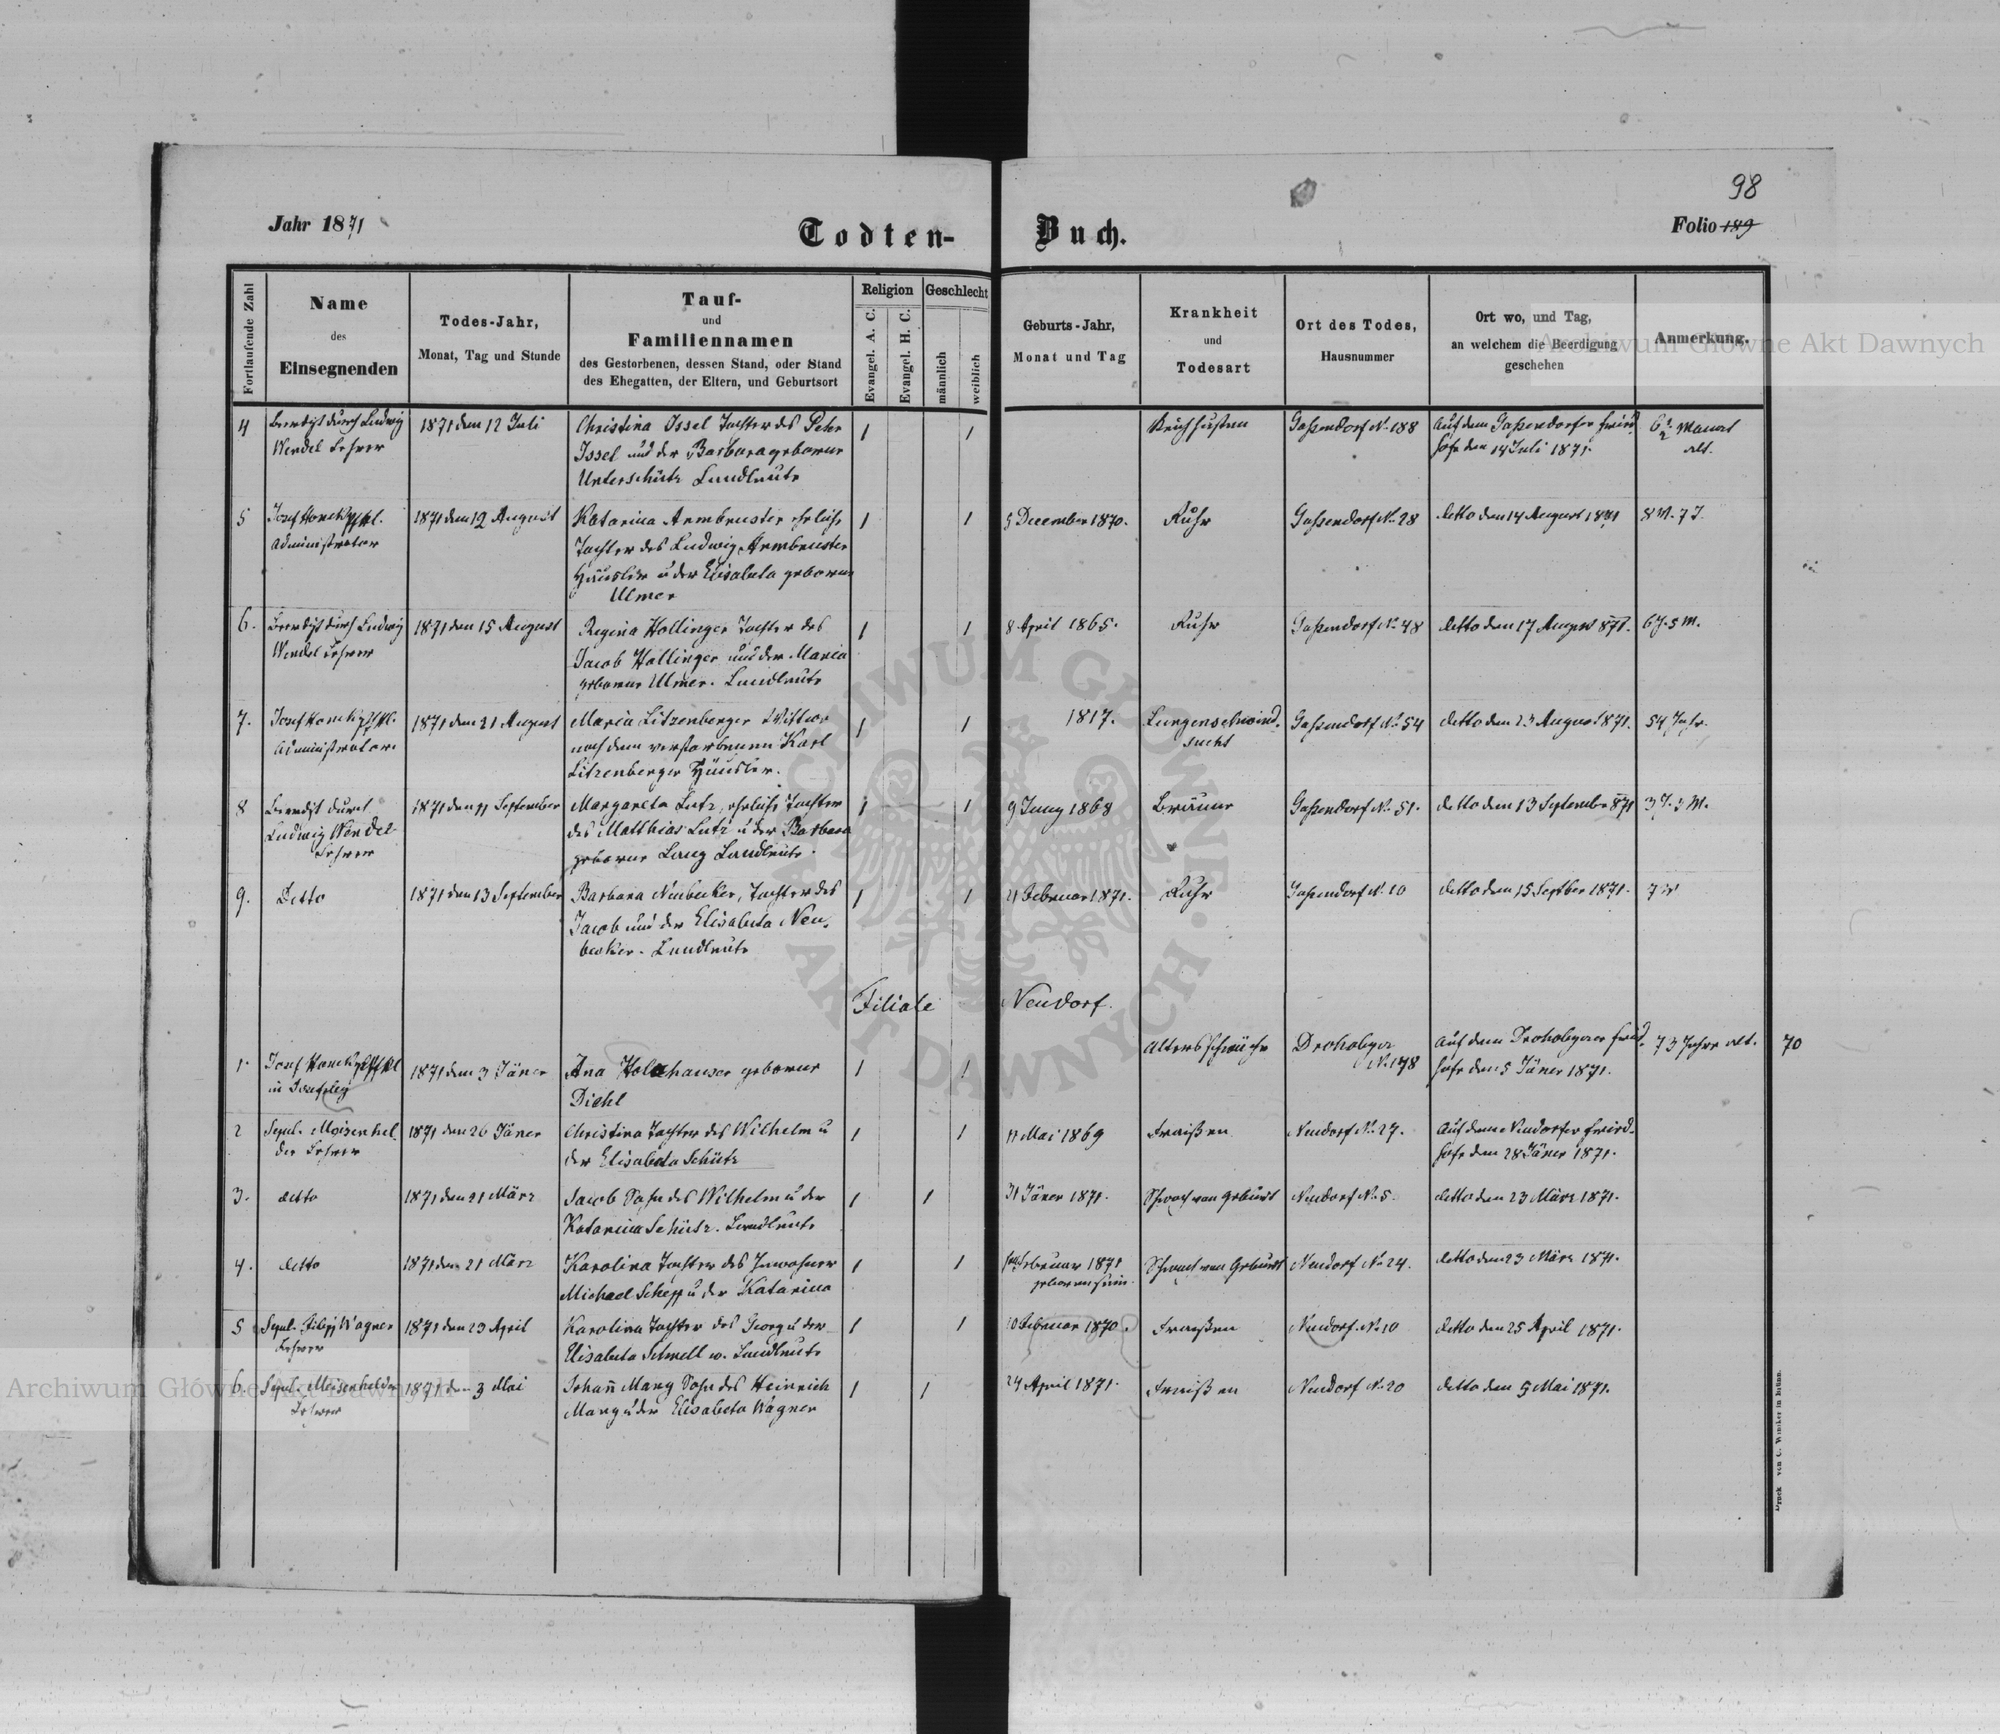 98
Jahr 1871
Todten-Buch.
Folio 189
Fortlaufende Zahl
Name
des
Einsegnenden
Todes-Jahr,
Monat, Tag und Stunde
Tauf-
und
Familiennamen
des Gestorbenen, dessen Stand, oder Stand
des Ehegatten, der Eltern, und Geburtsort
Religion
Evangel. A. C.
Evangel. H. C.
Geschlecht
männlich
weiblich
Geburts-Jahr,
Monat und Tag
Krankheit
und
Todesart
Ort des Todes,
Hausnummer
Ort wo, und Tag,
an welchem die Beerdigung
geschehen
Anmerkung.
4 Beerdigt durch Ludwig 1871 den 12 Juli Christina Issel Tochter des Peter 1 1 Keuchhusten Gaßendorf No 188 Auf dem Gaßendorfer Fried- 6 1/2 Monat
Wendel Lehrer Issel und der Barbara geborene hofe den 14 Juli 1871. alt.
Unterschütz Landleute
5 Josef 1871 den 12 August Katarina Armbruster eheliche 1 1 5 December 1870. Ruhr Gaßendorf No 28 detto den 14 August 1871 8 M. 7 T.
Administrator Tochter des Ludwig Armbruster
Häusler u der Elisabeta geborene
Ulmer
6. Beerdigt durch Ludwig 1871 den 15 August Regina Hollinger Tochter des 1 1 8 April 1865. Ruhr Gaßendorf No 48 detto den 17 August 871. 6 J. 5 M.
Wendel Lehrer Jacob Hollinger und der Maria
geborene Ulmer. Landleute
7. Josef 1871 den 21 August Maria Litzenberger Wittwe 1 1 1817. Lungenschwind- Gaßendorf No 54 detto den 23 August 1871. 54 Jahr.
Administrator nach dem verstorbenen Karl sucht
Litzenberger Häusler.
8 Beerdigt durch 1871 den 11 September Margareta Lutz, eheliche Tochter 1 1 9 Juny 1868 Bräune Gaßendorf No 51. detto den 13 September 871 3 J. 3 M.
Ludwig Wendel des Matthias Lutz u der Barbara
Lehrer geborene Lang Landleute.
9. Detto 1871 den 13 September Barbara Neubecker, Tochter des 1 1 21 Februar 1871. Ruhr Gaßendorf No 10 detto den 15 Septber 1871.
Jacob und der Elisabeta Neu-
becker. Landleute
Filiale Neudorf.
1. Josef 1871 den 3 Jäner Ana Holzhauser geborene 1 1 Altersschwäche Drohobycz Auf dem Drohobyczer Fried- 73 Jahre alt. 70
in Diehl No 178 hofe den 5 Jäner 1871.
2 Sepul. Meisenhel- 1871 den 26 Jäner Christina Tochter des Wilhelm u 1 1 11 Mai 1869 Fraißen Neudorf No 27. Auf dem Neudorfer Fried-
der Lehrer der Elisabeta Schütz hofe den 28 Jäner 1871.
3. detto 1871 den 21 März Jacob Sohn des Wilhelm u der 1 1 31 Jäner 1871. Schwach von Geburt Neudorf No 5. detto den 23 März 1871.
Katarina Schütz. Landleute
4. detto 1871 den 21 März Karolina Tochter des Inwohner 1 1 Februar 1871 Schwach von Geburt Neudorf No 24. detto den 23 März 1871.
Michael Schepp u der Katarina geboren
5 Sepul. Filipp Wagner 1871 den 23 April Karolina Tochter des Georg u der 1 1 10 Februar 1870. Fraißen Neudorf No 10 detto den 25 April 1871.
Lehrer Elisabeta Schnell w. Landleute
6. Sepul. Meisenhelder 1871 den 3 Mai Johann Mang Sohn des Heinrich 1 1 24 April 1871. Fraißen Neudorf No 20 detto den 5 Mai 1871.
Lehrer Mang u der Elisabeta Wagner
Druck von C. Winiker in Brünn.
Archiwum Główne Akt Dawnych
Archiwum Główne Akt Dawnych
ARCHIWUM GŁÓWNE AKT DAWNYCH